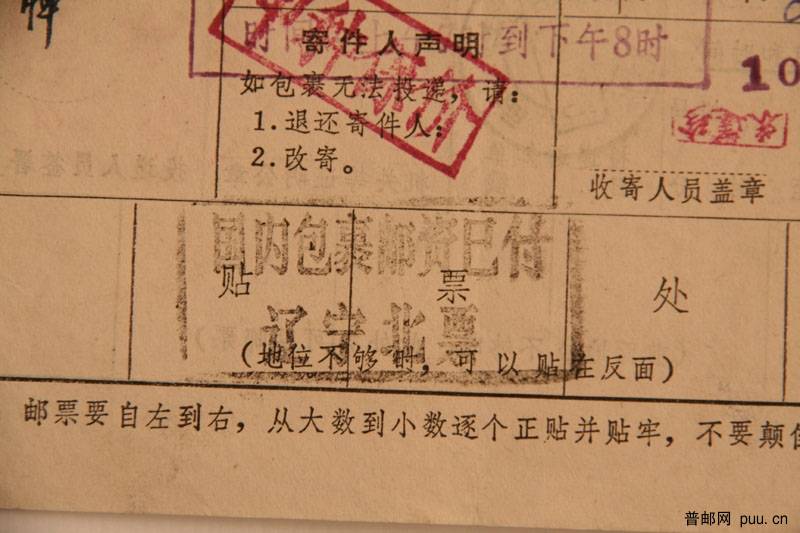 牌
寄件人声明
时间 到下午8时
如包裹无法投递，请：
1.退还寄件人；
2.改寄。
10
收寄人员盖章
国内包裹邮资已付
辽宁北票
贴 票 处
(地位不够时，可以贴在反面)
邮票要自左到右，从大数到小数逐个正贴并贴牢，不要颠
普邮网 puu.cn